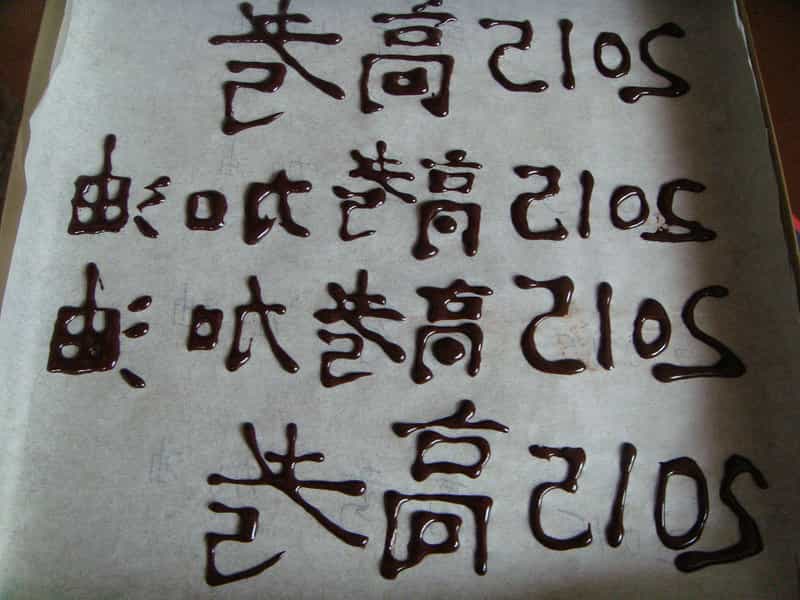 2015高考
2015高考加油
2015高考加油
2015高考